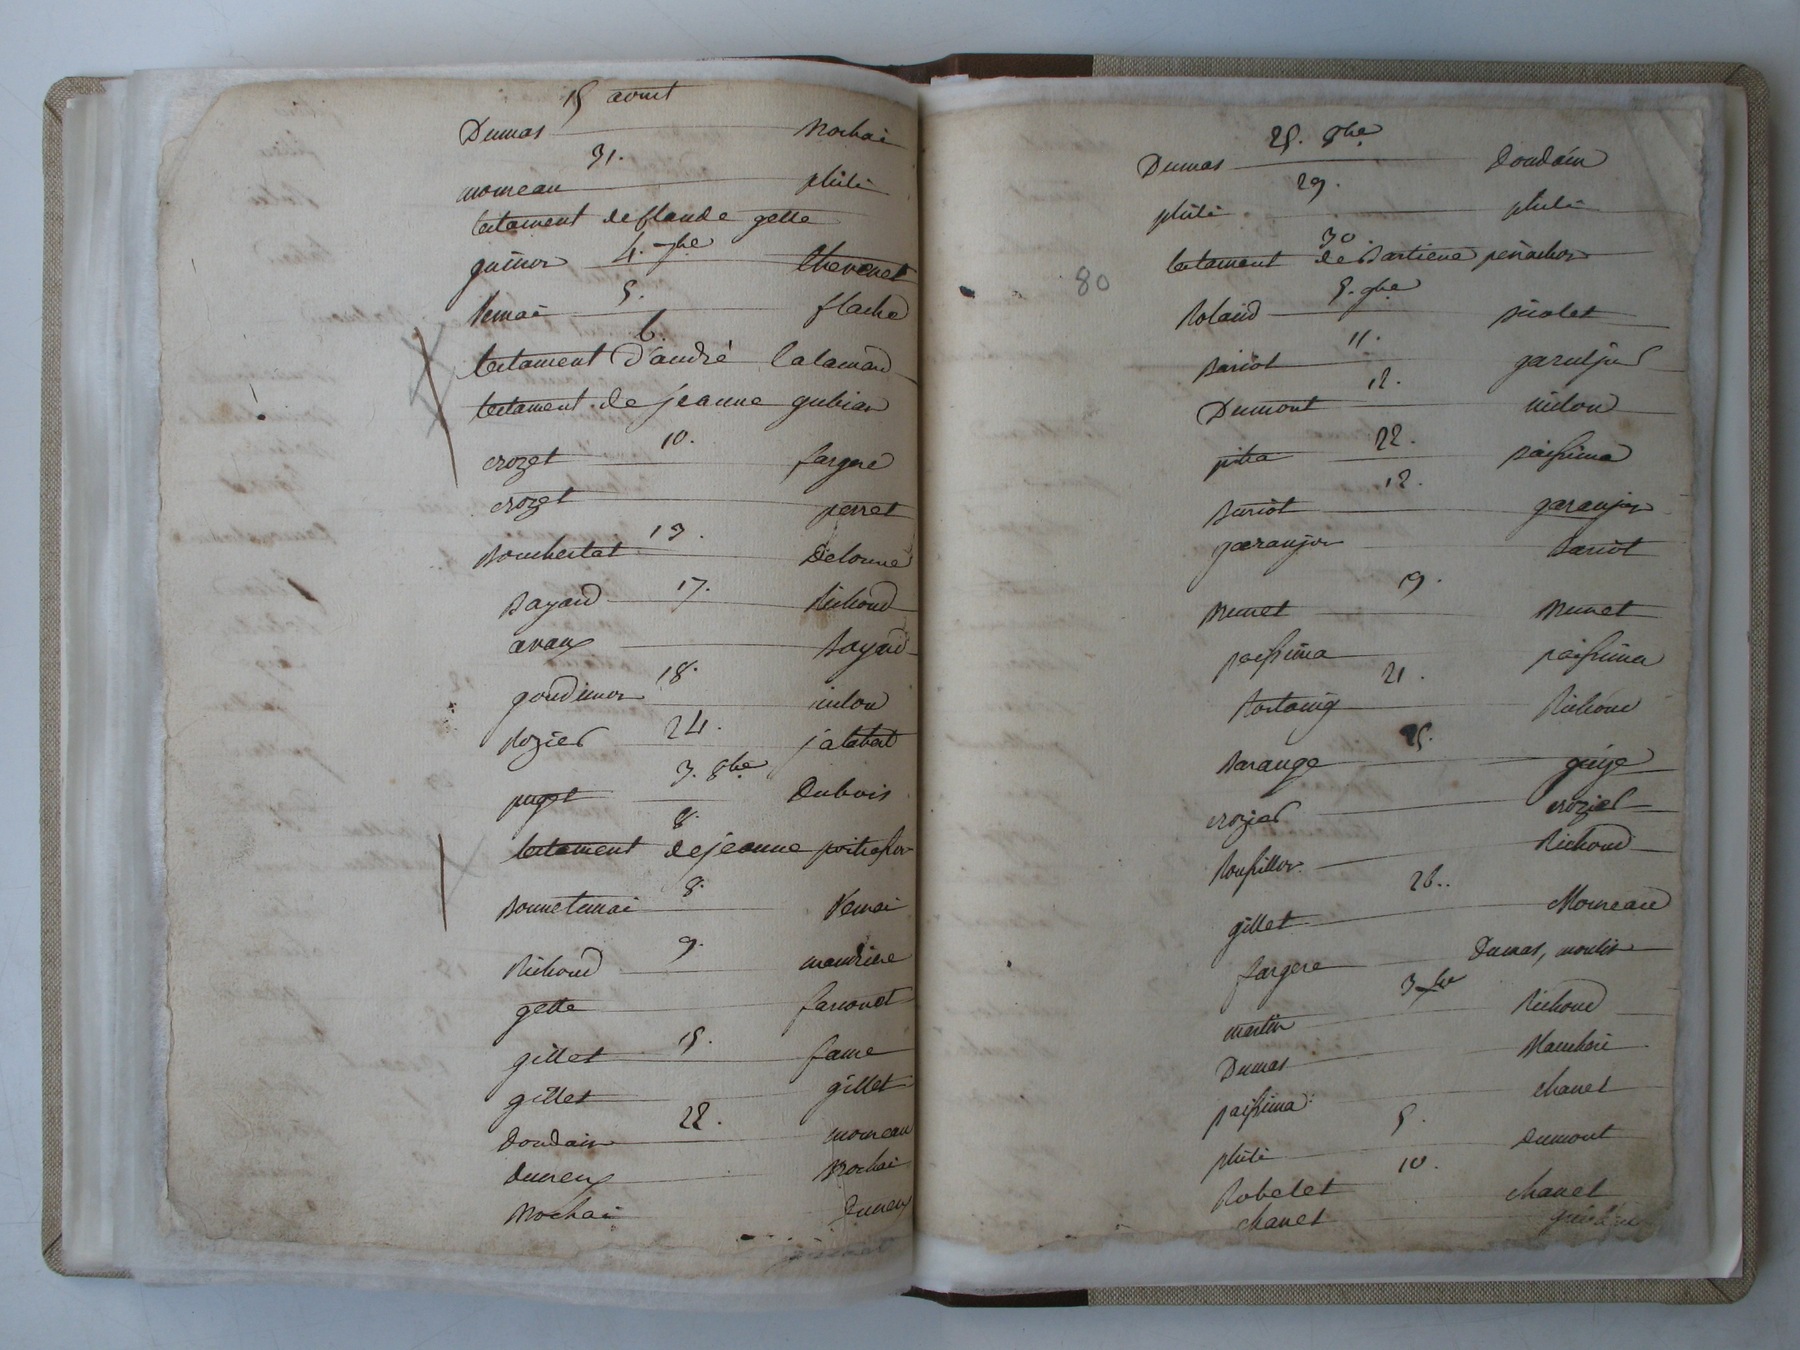 15 aoust
Dumas Mochai
31.
moureau philis
testament de claude gette
4. 7bre
guinon thevenet
5.
Remai flachd
6.
testament d'andré lalamand
testament de jeanne gubian
10.
crozet fargere
crozet perret
13.
Bouchertat Delorme
17.
Bayard Richoud
avaux Bayard
18.
gondimon nidou
24.
Rozier jalabat
3. 8bre
puget Dubois
8.
testament de jeanne
8.
Bonnetmai Remai
9.
Richoud mandrine
gette farconet
15.
gillet faure
gillet gillet
22.
doudain moureau
dureux Mochai
Mochai dureux
25. 8bre
Dumas doudain
29.
phili phili
30
testament de
80
5. 9bre
Rolaud nicolet
11.
Bariot
12.
Dumont nidou
22.
pitra paissima
12.
Buriot garanjon
garanjon Bariot
19.
Munet Munet
paissima paissima
21.
Rostaing Richoud
25.
Barange
crozier crozier
Roussillon Richoud
26.
gillet Moureau
fargere Dumas, moulin
3 xbre
martin Richoud
Dumas
paissima chanel
5.
phili Dumont
10.
Robelet chanel
chanel